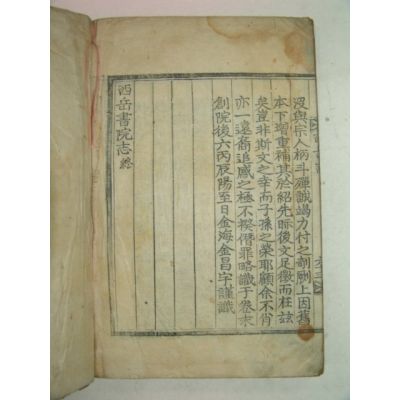 沒與宗人柄斗殫誠竭力付之剞劂上因舊
本下增重補其於紹先眎後文足徵而在玆
矣豈非斯文之幸而子孫之榮耶顧余不肖
亦一遠裔追感之極不揆僭罪略識于卷末
創院後六丙辰陽至日金海金昌宇謹識
西岳書院志終